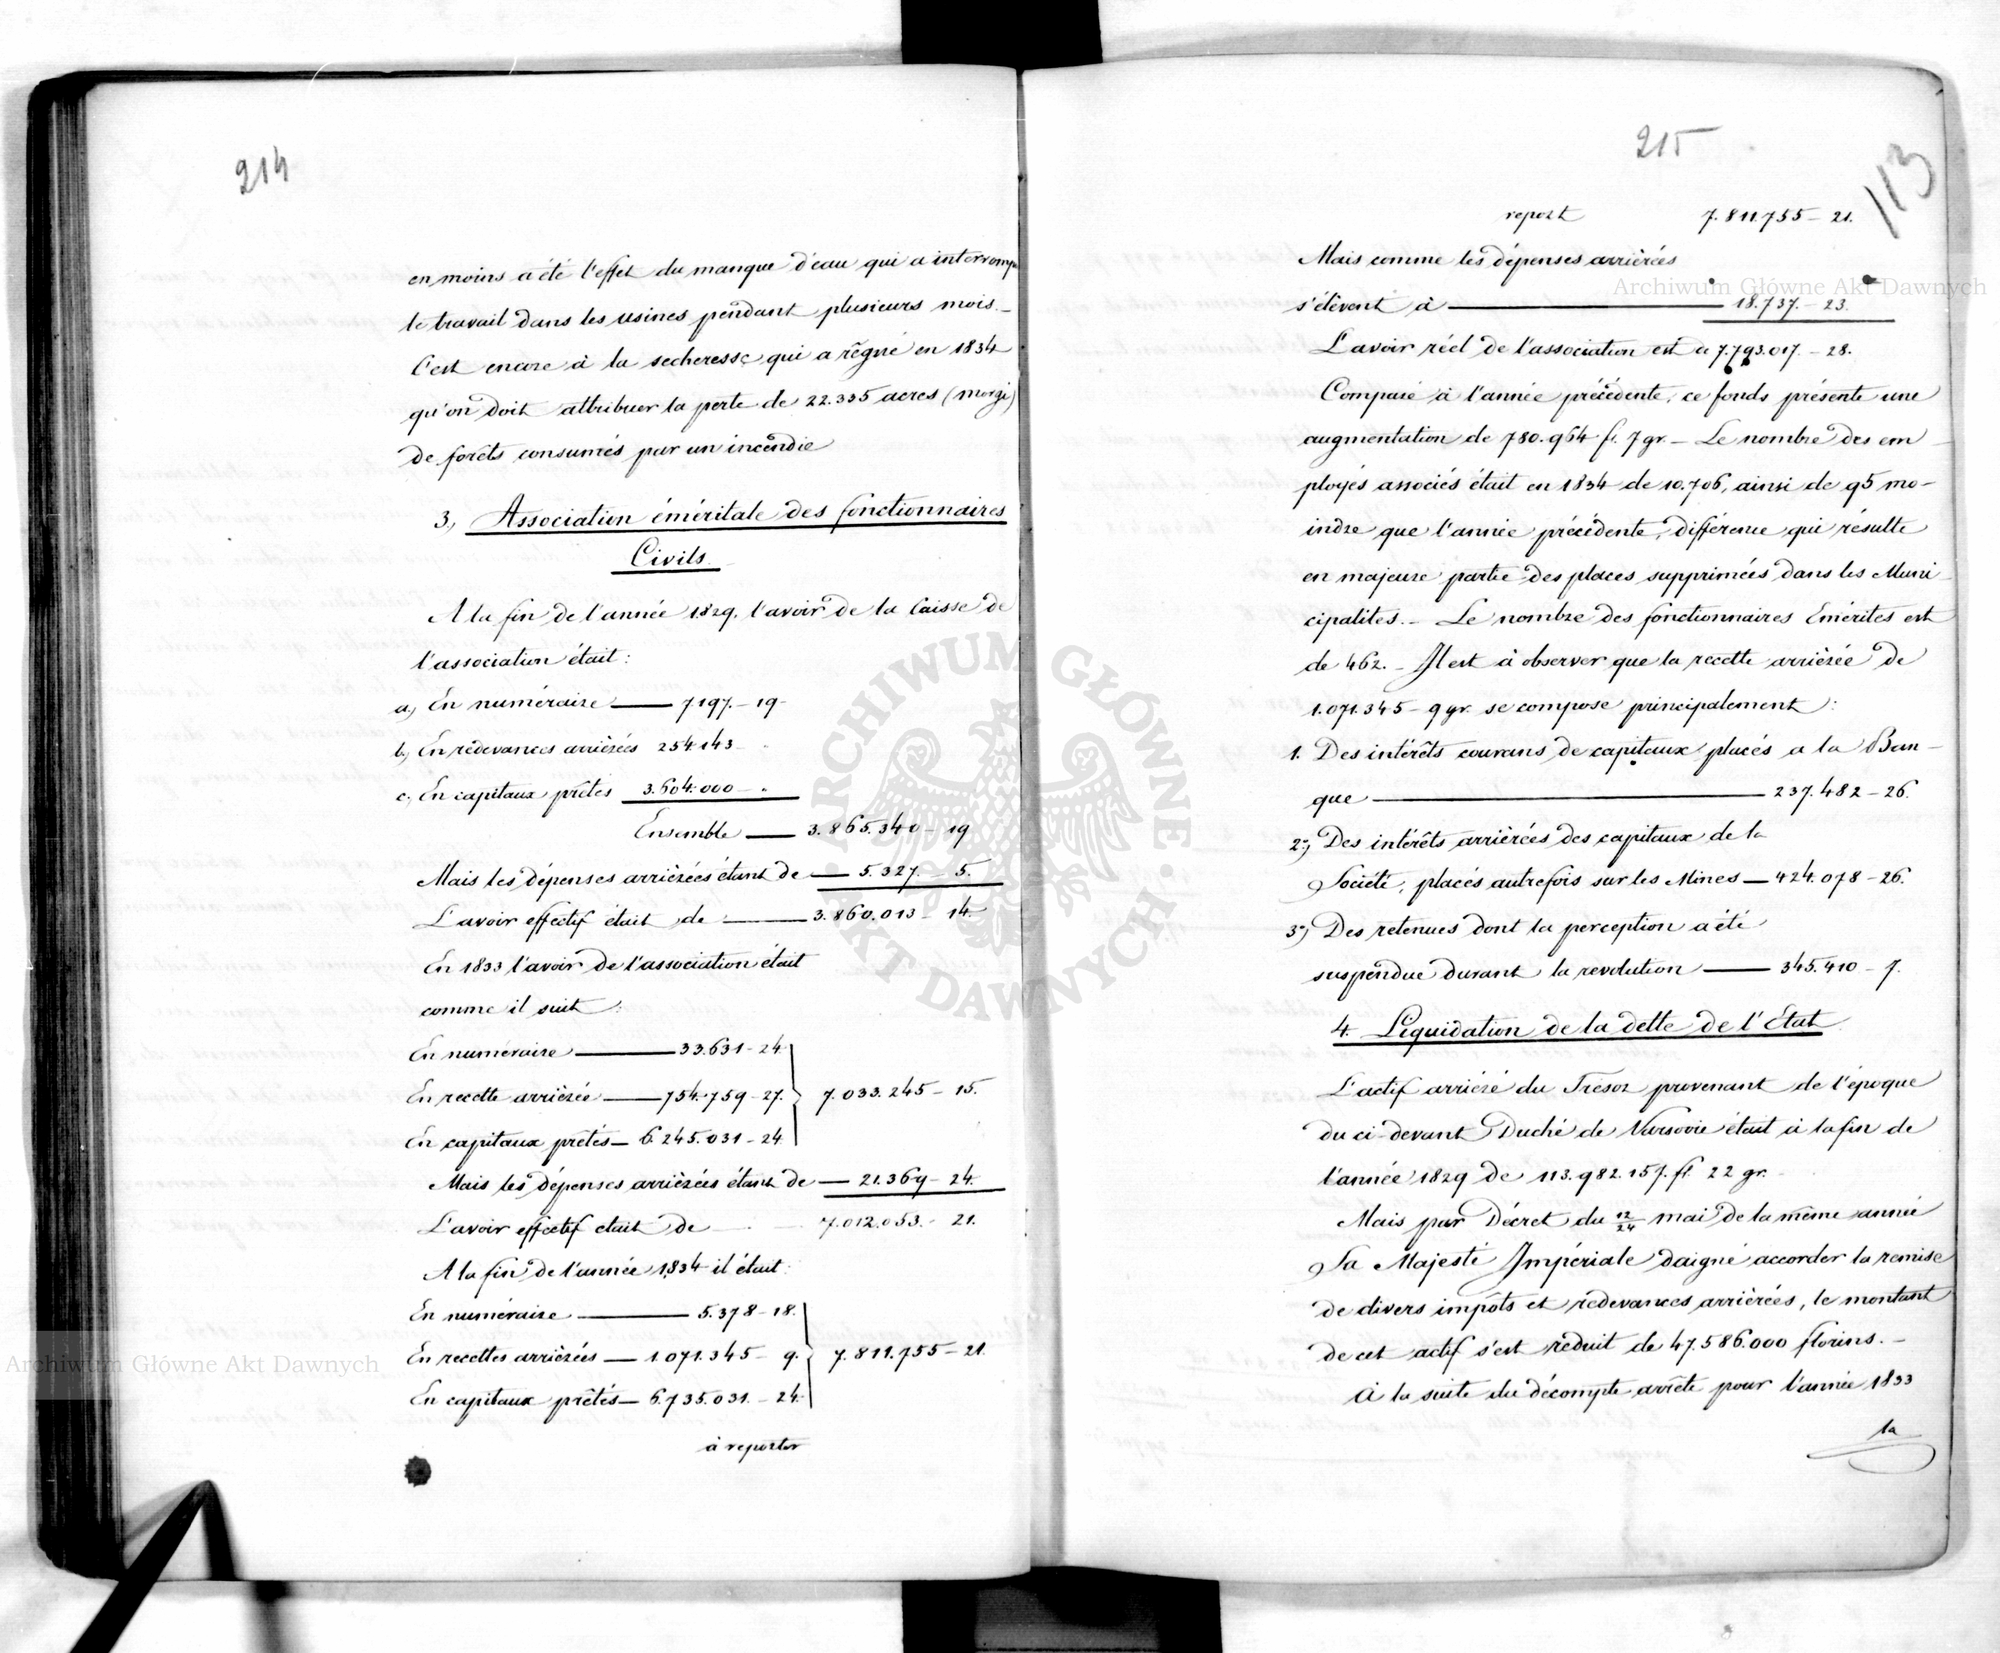 214
en moins a été l'effet du manque d'eau qui a interrompu
le travail dans les usines pendant plusieurs mois.
C'est encore à la secheresse qui a régné en 1834
qu'on doit attribuer la perte de 22.335 acres (morgi)
de forêts consumés par un incendie
3, Association éméritale des fonctionnaires
Civils
A la fin de l'année 1829, l'avoir de la Caisse de
l'association était:
a, En numéraire — 7197.- 19-
b, En redevances arriérées 254.143 - "
c, En capitaux prêtés 3.604.000 - "
Ensemble — 3.865.340 - 19
Mais les dépenses arriérées étant de — 5.327. - 5.
L'avoir effectif était de — 3.860.013 - 14.
En 1833 l'avoir de l'association était
comme il suit:
En numéraire — 33.631 - 24.
En recette arriérée — 754.759 - 27. 7.033.245 - 15.
En capitaux prêtés — 6.245.031 - 24.
Mais les dépenses arriérées étant de — 21.369 - 24.
L'avoir effectif était de — 7.012.053. - 21.
A la fin de l'année 1834 il était:
En numéraire — 5.378 - 18.
En recettes arriérées — 1.071.345 - 9. 7.811.755 - 21.
En capitaux prêtés — 6.735.031. - 24.
à reporter
215
113
report 7.811.755 - 21.
Mais comme les dépenses arriérées
s'élèvent à — 18.737. - 23.
L'avoir réel de l'association est de 7.793.017. - 28.
Comparé à l'année précédente, ce fonds présente une
augmentation de 780.964 fl. 7 gr. - Le nombre des em
ployés associés était en 1834 de 10.706, ainsi de 95 mo-
indre que l'année précédente, différence qui résulte
en majeure partie des places supprimées dans les Muni
cipalités. - Le nombre des fonctionnaires Emérites est
de 462. - Il est à observer que la recette arriérée de
1.071.345 - 9 gr. se compose principalement:
1. Des intérêts courans de capitaux placés a la Ban-
que — 237.482 - 26.
2°, Des intérêts arriérées des capitaux de la
Société, placés autrefois sur les Mines — 424.078 - 26.
3°, Des retenues dont la perception a été
suspendue durant la revolution — 345.410 - 7.
4. Liquidation de la dette de l'Etat
L'actif arriéré du Trésor provenant de l'époque
du ci-devant Duché de Varsovie était à la fin de
l'année 1829 de 113.982.157. fl. 22 gr.
Mais par Décret du 12/24 mai de la même année
Sa Majesté Impériale daigné accorder la remise
de divers impôts et redevances arriérées, le montant
de cet actif s'est réduit de 47.586.000 florins. -
A la suite du décompte arrêté pour l'année 1833
la
Archiwum Główne Akt Dawnych
Archiwum Główne Akt Dawnych
ARCHIWUM GŁÓWNE AKT DAWNYCH